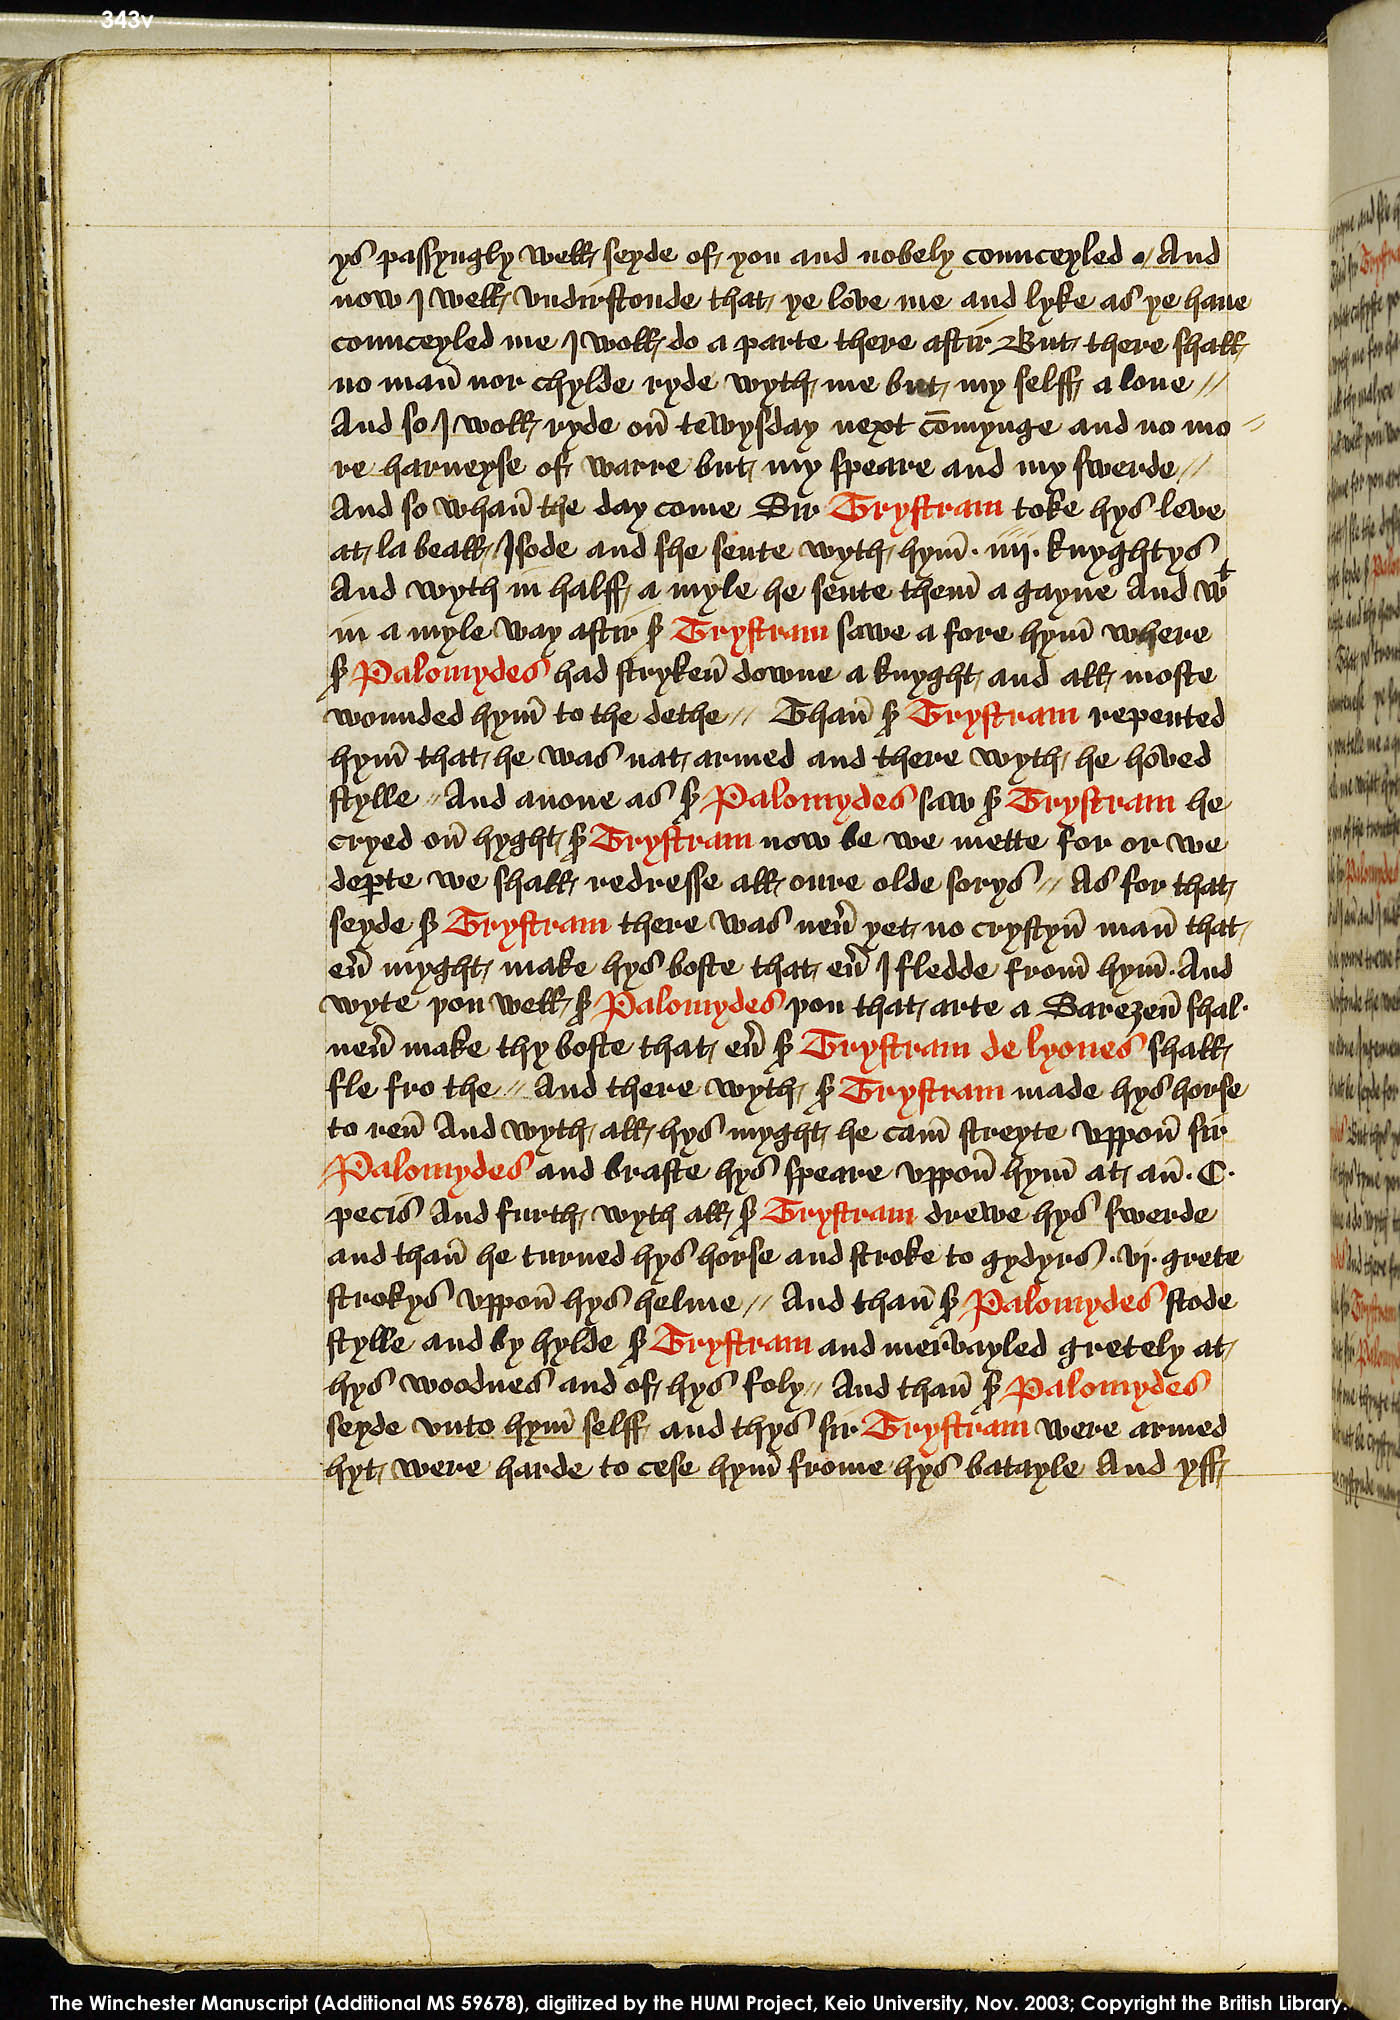 343v
ys passyngly well seyde of you and nobely counceyled . // And
now I well vndirstonde that ye love me and lyke as ye haue
counceyled me I woll do a parte there aftir But there shall
no man̄ nor chylde ryde wyth me but my selff a lone //
And so I woll ryde on̄ tewysday next cōmynge and no mo //
re harneyse of warre but my speare and my swerde //
And so whan̄ the day come Sir Trystram toke hys leve
at la beall Isode and she sente wyth hym̄ . iiij . knyghtys
And wyth in halff a myle he sente them̄ a gayne And wᵗ
in a myle way aftir sꝰ Trystram sawe a fore hym̄ where
sꝰ Palomydes had stryken̄ downe a knyght and all moste
wounded hym̄ to the dethe // Than̄ sꝰ Trystram repented
hym̄ that he was nat armed and there wyth he hoved
stylle // And anone as sꝰ Palomydes saw sꝰ Trystram he
cryed on̄ hyght sꝰ Trystram now be we mette for or we
deꝑte we shall redresse all oure olde sorys // As for that
seyde sꝰ Trystram there was neu̾ yet no crystyn̄ man̄ that
eu̾ myght make hys boste that eu̾ I fledde from̄ hym̄ . And
wyte you well sꝰ Palomydes you that arte a Sarezen̄ shal .
neu̾ make thy boste that eu̾ sꝰ Trystram de lyones shall
fle fro the // And there wyth sꝰ Trystram made hys horse
to ren̄ And wyth all hys myght he cam̄ streyte vppon̄ sir
Palomydes and braste hys speare vppon̄ hym̄ at an̄ . C .
pecis And furth wyth all sꝰ Trystram drewe hys swerde
and than̄ he turned hys horse and stroke to gydyrs . vj . grete
strokys vppon̄ hys helme // And than̄ sꝰ Palomydes stode
stylle and by hylde sꝰ Trystram and mervayled gretely at
hys woodnes and of hys foly // And than̄ sꝰ Palomydes
seyde vnto hym̄ selff and thys sir Trystram were armed
hyt were harde to cese hym̄ frome hys batayle And yff
The Winchester Manuscript (Additional MS 59678), digitized by the HUMI Project, Keio University, Nov. 2003; Copyright the British Library.